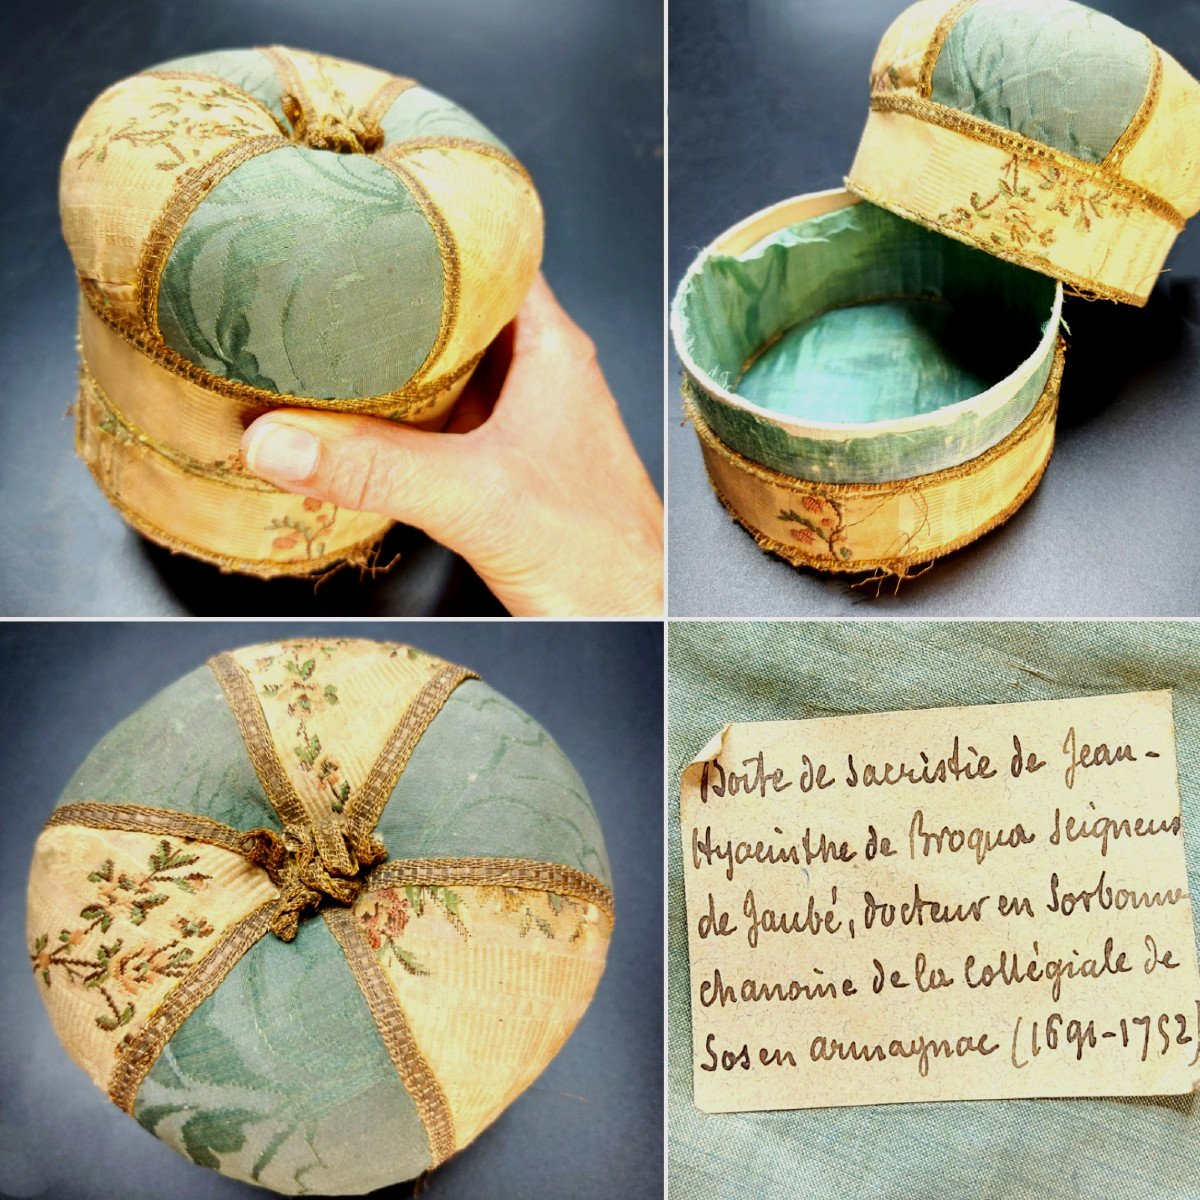 Boîte de Sacristie de Jean-
Hyacinthe de Broqua Seigneur
de Jaubé, docteur en Sorbonne
chanoine de la Collégiale de
Sos en armagnac (1691-1752)